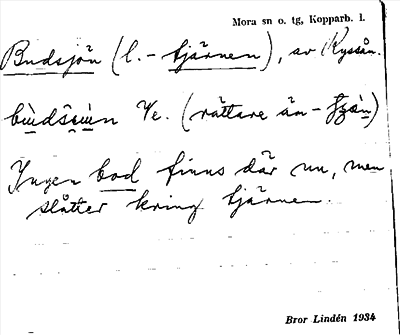 Mora sn o. tg, Kopparb. l.
Budsjön (l. - tjärnen), av Ryssån.
(rättare än -
Ingen bod finns där nu, men
slåtter kring tjärnen.
Bror Lindén 1934